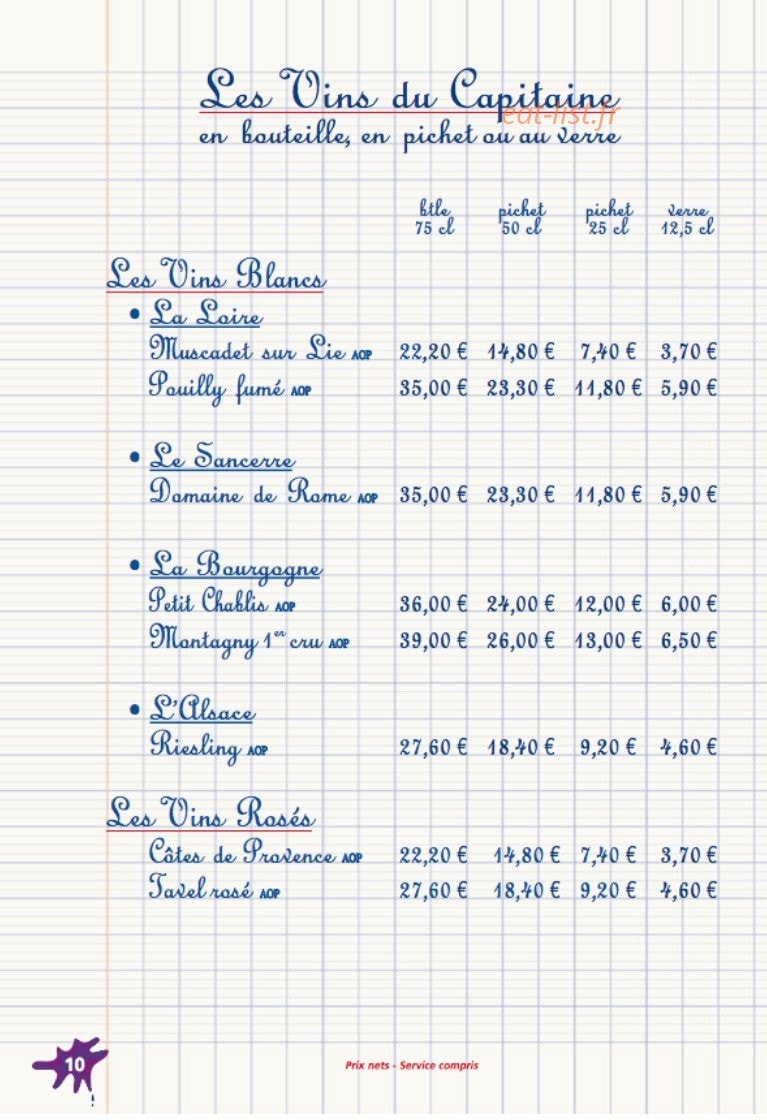 Les Vins du Capitaine
eat-list.fr
en bouteille, en pichet ou au verre
btle pichet pichet verre
75 cl 50 cl 25 cl 12,5 cl
Les Vins Blancs
• La Loire
Muscadet sur Lie AOP 22,20 € 14,80 € 7,40 € 3,70 €
Pouilly fumé AOP 35,00 € 23,30 € 11,80 € 5,90 €
• Le Sancerre
Domaine de Rome AOP 35,00 € 23,30 € 11,80 € 5,90 €
• La Bourgogne
Petit Chablis AOP 36,00 € 24,00 € 12,00 € 6,00 €
Montagny 1er cru AOP 39,00 € 26,00 € 13,00 € 6,50 €
• L'Alsace
Riesling AOP 27,60 € 18,40 € 9,20 € 4,60 €
Les Vins Rosés
Côtes de Provence AOP 22,20 € 14,80 € 7,40 € 3,70 €
Tavel rosé AOP 27,60 € 18,40 € 9,20 € 4,60 €
10
Prix nets - Service compris